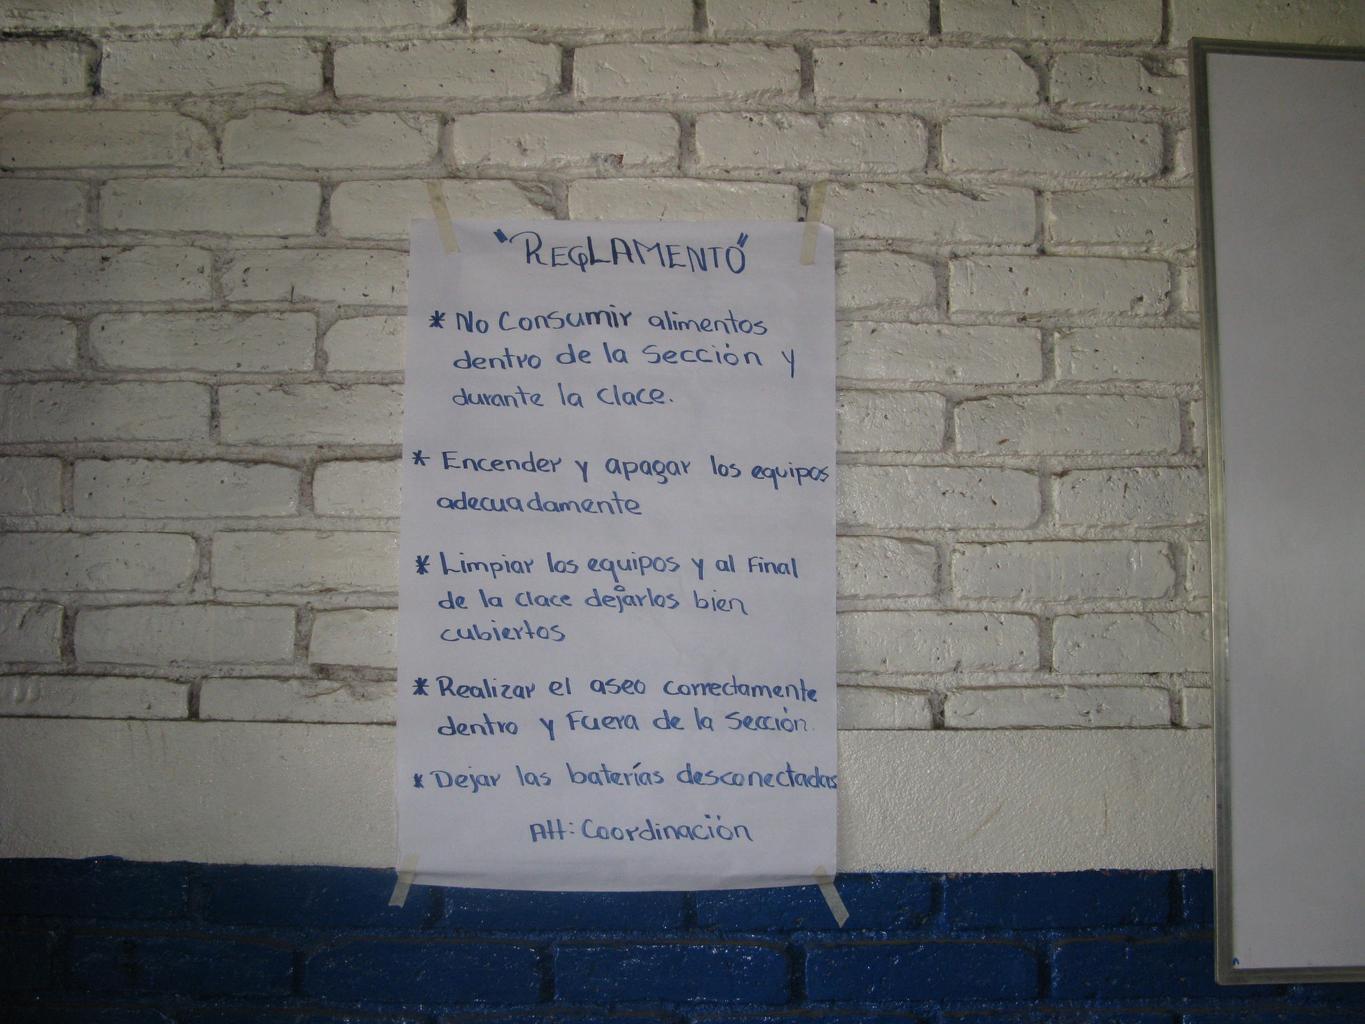 "REGLAMENTO"
* No Consumir alimentos
dentro de la Sección y
durante la clace.
* Encender y apagar los equipos
adecuadamente
* Limpiar los equipos y al Final
de la clace dejarlos bien
cubiertos
* Realizar el aseo correctamente
dentro y Fuera de la Sección.
* Dejar las baterías desconectadas
Att: Coordinación